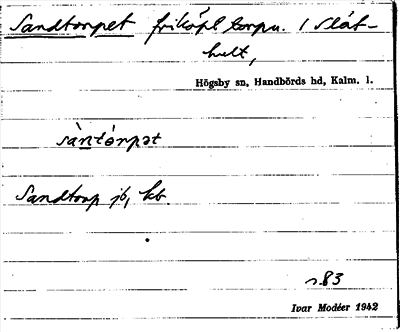 Sandtorpet friköpt torpu. i Slät-
hult,
Högsby sn, Handbörds hd, Kalm. l.
sàntórpət
Sandtorp jb, kb.
s.83
Ivar Modéer 1942